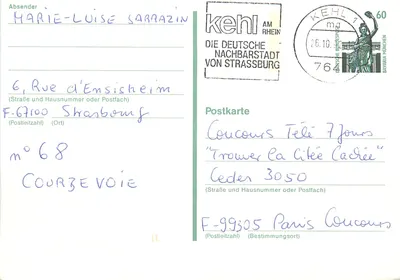 Absender
MARIE-LUISE SARRAZIN
6, Rue d'Ensisheim
(Straße und Hausnummer oder Postfach)
F-67100 Strasbourg
(Postleitzahl) (Ort)
n° 68
COURBEVOIE
kehl AM RHEIN
DIE DEUTSCHE
NACHBARSTADT
VON STRASSBURG
KEHL 1
mg
26.10.
764
60
Postkarte
Concours Télé 7 Jours
"Trouver la Citée Cachée"
Cedex 3050
(Straße und Hausnummer oder Postfach)
F-99305 Paris Concours
(Postleitzahl) (Bestimmungsort)